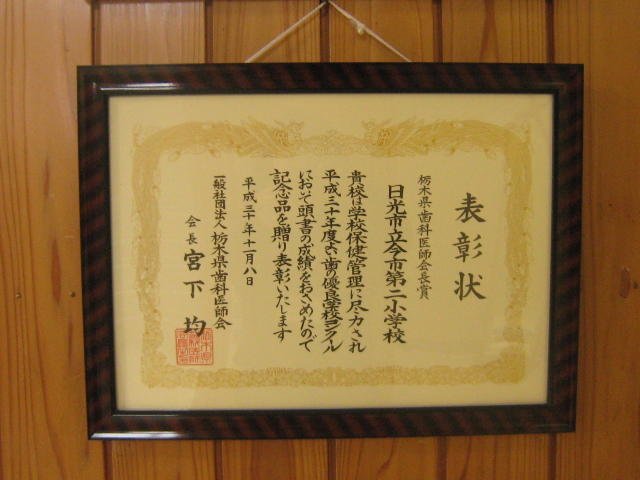 表彰状
栃木県歯科医師会長賞
日光市立今市第二小学校
貴校は学校保健管理に尽力され
平成三十年度よい歯の優良学校コンクール
において頭書の成績をおさめたので
記念品を贈り表彰いたします
平成三十年十一月八日
一般社団法人 栃木県歯科医師会
会長 宮下 均